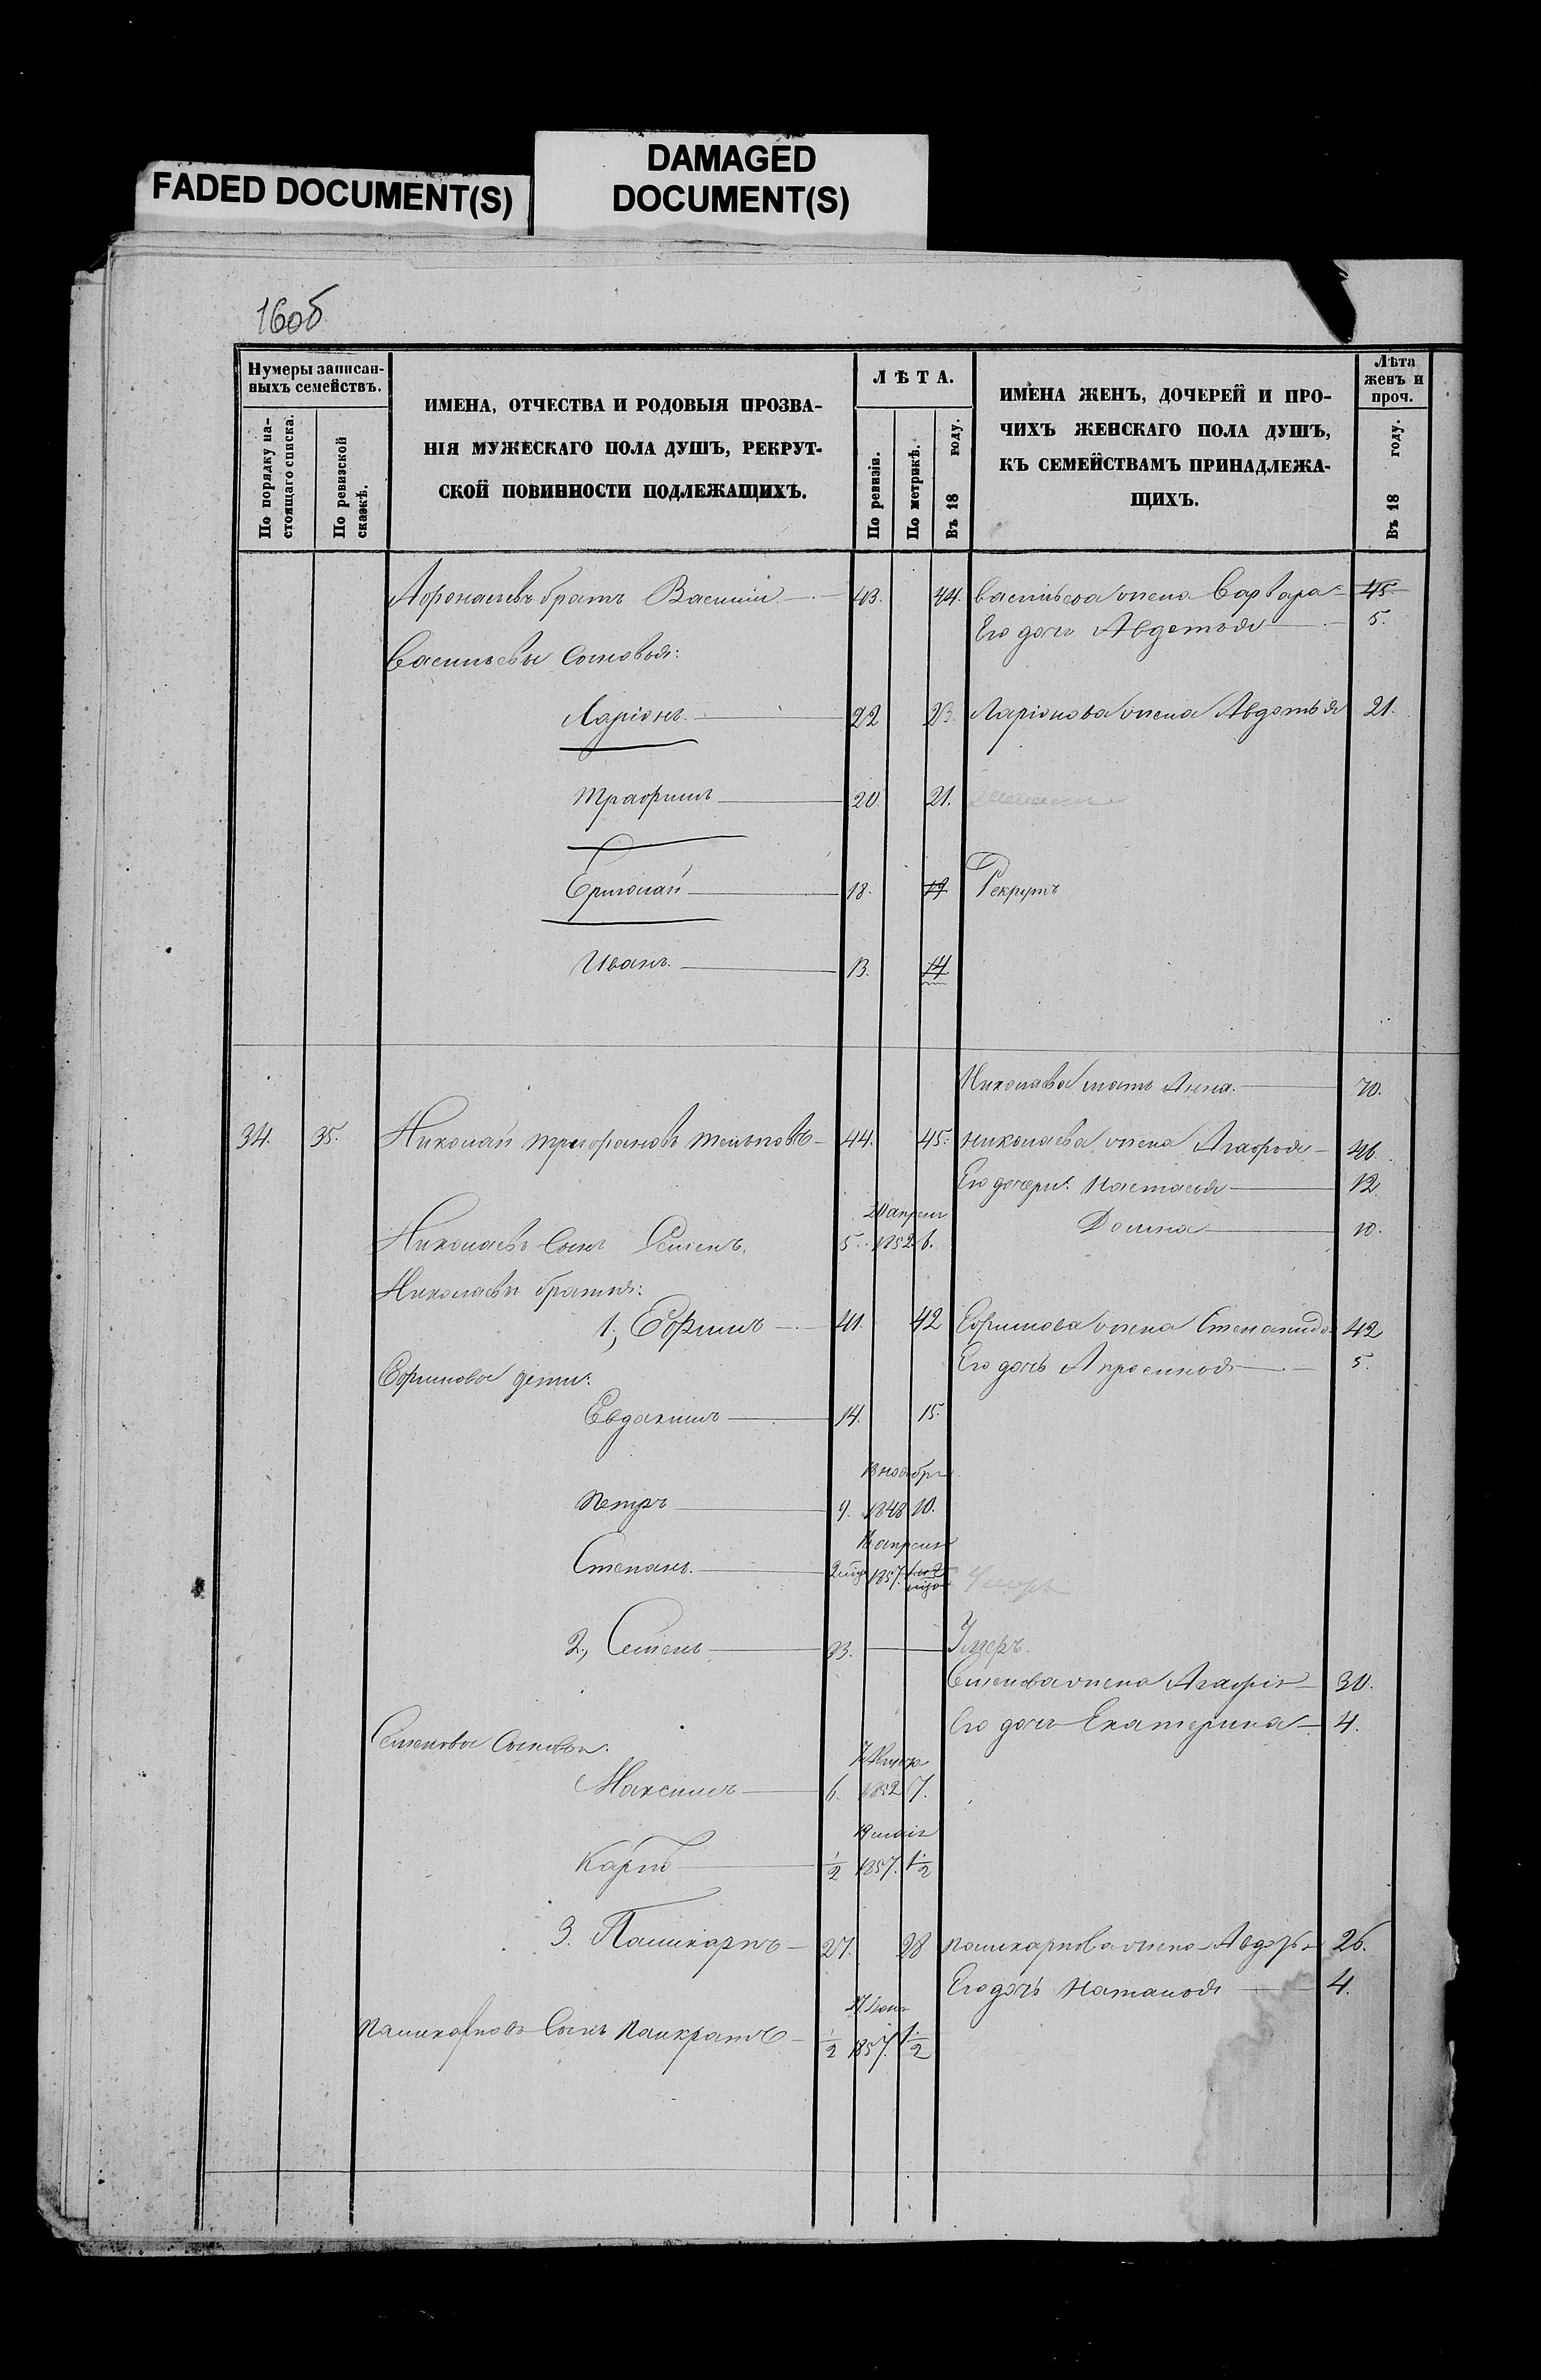 FADED DOCUMENT(S)
DAMAGED
DOCUMENT(S)
16об
Нумеры записан-
ныхъ семействъ.
По порядку на-
стоящаго списка.
По ревизской
сказкѣ.
ИМЕНА, ОТЧЕСТВА И РОДОВЫЯ ПРОЗВА-
НІЯ МУЖЕСКАГО ПОЛА ДУШЪ, РЕКРУТ-
СКОЙ ПОВИННОСТИ ПОДЛЕЖАЩИХЪ.
ЛѢТА.
По ревизіи.
По метрикѣ.
Въ 18 году.
ИМЕНА ЖЕНЪ, ДОЧЕРЕЙ И ПРО-
ЧИХЪ ЖЕНСКАГО ПОЛА ДУШЪ,
КЪ СЕМЕЙСТВАМЪ ПРИНАДЛЕЖА-
ЩИХЪ.
Лѣта
женъ и
проч.
Въ 18 году.
Афонасьевъ братъ Василий 43. 44. Васильева жена Варвара 45
Его дочь Авдотья 5.
Васильевы Сыновья:
Ларіонъ 22 23. Ларіонова жена Авдотья 21.
Трафимъ 20 21.
Ермолай 18. 19 Рекрутъ
Иванъ 13. 14
Николаева мать Анна 70.
34. 35. Николай 44. 45. Николаева жена Агафья 46.
Его дочери: Настасья 12.
20 апреля Домна 10.
Николаевъ Сынъ Семенъ 5. 1852 6.
Николаевы братья:
1, Ефимъ 41. 42 Ефимова жена Степанида 42
Его дочь Апросинья 5.
Ефимовы дети:
Евдакимъ 14. 15.
13 ноября
Петръ 9. 1848 10.
апреля
Степанъ 1857. Умеръ
2, Семенъ 33. Умеръ.
Семенова жена Агафія 30.
Его дочь Екатерина 4.
Семеновы Сыновья:
Января
Максимъ 6. 1852 7.
19 маія
Карпъ 1/2 1857. 1 1/2
3. Паликарпъ 27. 28 Паликарпова жена Авдотья 26.
Его дочь Наталья 4.
Паликарповъ Сынъ Панкратъ 1/2 1857. 1 1/2